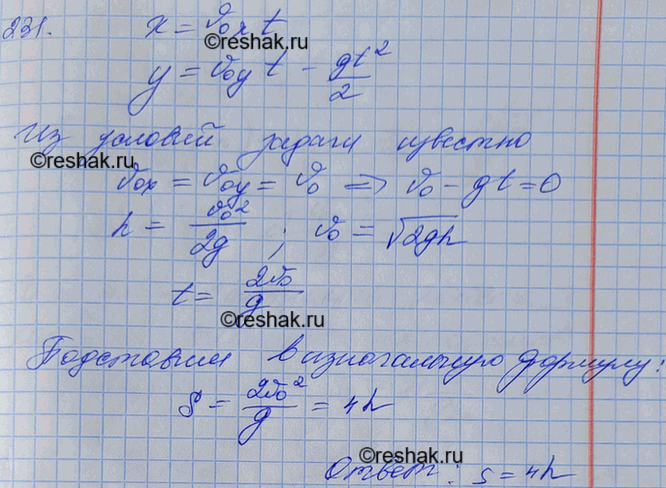 231. x = v₀ₓ t
©reshak.ru
y = v₀y t - gt²/2
Из условий задачи известно
©reshak.ru
v₀ₓ = v₀y = v₀ => v₀ - gt = 0
h = v₀²/2g ; v₀ = √2gh
t = 2v₀/g
©reshak.ru
Подставим в изначальную формулу:
S = 2v₀²/g = 4h
©reshak.ru
©reshak.ru
Ответ: s = 4h